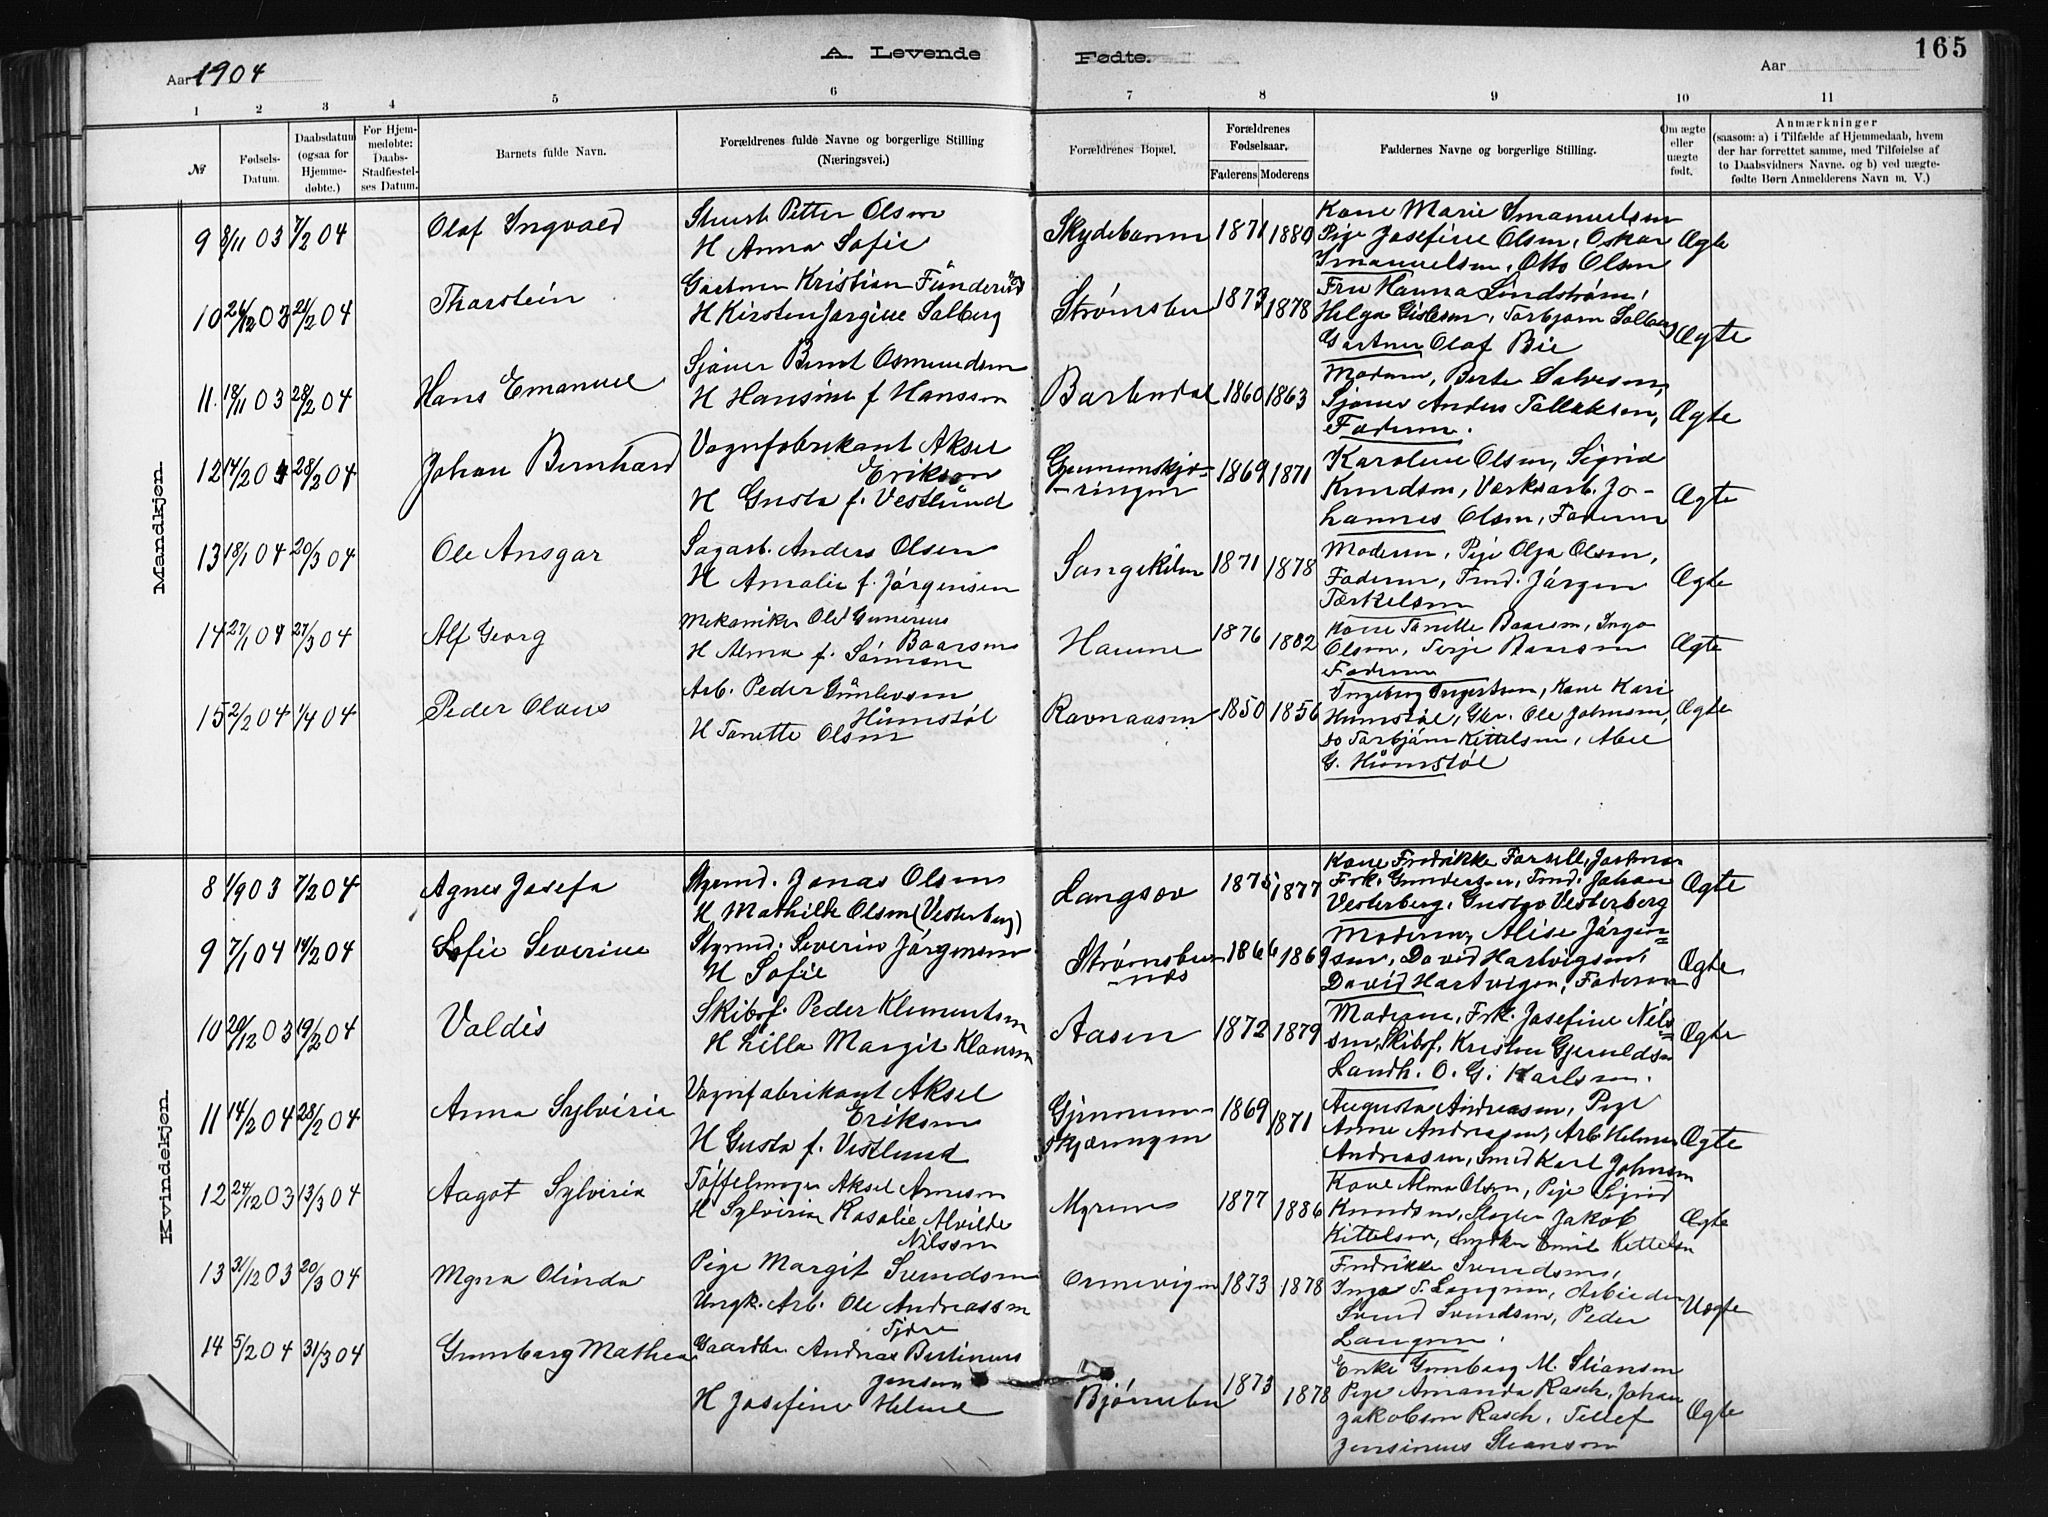 Aar 1904
A. Levende
Fødte.
Aar
165
1 2 3 4 5 6 7 8 9 10 11
№
Fødsels-
Datum.
Daabsdatum
(ogsaa for
Hjemme-
døbte.)
For Hjem-
medøbte:
Daabs-
Stadfæstel-
ses Datum.
Barnets fulde Navn.
Forældrenes fulde Navne og borgerlige Stilling
(Næringsvei.)
Forældrenes Bopæl.
Forældrenes
Fødselsaar.
Faderens Moderens
Faddernes Navne og borgerlige Stilling.
Om ægte
eller
uægte
født.
Anmærkninger
(saasom: a) i Tilfælde af Hjemmedaab, hvem
der har forrettet samme, med Tilføielse af
to Daabsvidners Navne, og b) ved uægte-
fødte Børn Anmelderens Navn m. V.)
Mandkjøn
9 8/11 03 7/2 04 Olaf Ingvald
Petter Olsen
H Anna Sofie
Skydebanen 1871 1880
Kone Marie Imanuelsen
Pige Josefine Olsen, Oskar
Imanuelsen, Otto Olsen
Ægte
10 26/12 03 21/2 04 Thorstein
Gartner Kristian
H Kirsten Jørgine Solberg
Strømsbu 1873 1878
Fru Hanna Lindstrøm,
Helga Torbjørn Solberg
Gartner Olaf Bie
Ægte
11. 18/11 03 28/2 04 Hans Emanuel
Sjøner Bernt Osmundsen
H Hansine f Hansson
Barbudal 1860 1863
Modern, Berte Salvesen,
Sjøner Anders Tallaksen,
Fadern.
Ægte
12 14/2 04 28/2 04 Johan Bernhard
Vognfabrikant Aksel
Erikson
H Gusta f. Vestlund
1869 1871
Karoline Olsen, Sigrid
Knudsen, Værksarb. Jo-
hannes Olsen, Fadern
Ægte
13 18/1 04 20/3 04 Ole Ansgar
Sagarb. Anders Olsen
H Amalie f. Jørgensen
Songekilen 1871 1878
Modern, Pige Olga Olsen,
Fadern, Tmd. Jørgen
Tærkelsen
Ægte
14 27/1 04 27/3 04 Alf Georg
Mekaniker Ole Gunerius
Baarsen
H Alma f.
1876 1882
Kone Tanette Baarsen, Inga
Olsen, Terje Baarsen
Fadern
Ægte
15 2/2 04 1/4 04 Peder Olaus
Arb. Peder Gunlevsen
Humstøl
H Tanette Olsen
Ravnaasen 1850 1856
Ingeborg Kone Kari
Humstøl, Gbr. Ole Johnsen,
do Torbjørn Kittelsen, Abel
G. Humstøl
Ægte
Kvindekjøn
8 1/9 03 7/2 04 Agnes Josefa
Styrmd. Jonas Olsen
H Mathilde Olsen (Vesterberg)
Langsæv 1875 1877
Kone Fredrikke
Frk. Gundersen, Tmd. Johan
Vesterberg, Gustav Vesterberg
Ægte
9 7/1 04 14/2 04 Sofie Severine
Styrmd. Severin Jørgensen
H Sofie
Strømsbu-
næs
1866 1869
Modern, Alise Jørgen=
sen, David Hartvigsen,
David Hartvigsen, Fadern
Ægte
10 29/12 03 19/2 04 Valdis
Skibsf. Peder Klementsen
H Lilla Margit Klausen
Aasen 1872 1879
Modern, Frk. Josefine Nils=
sen, Skibsf. Kristen Gjeruldsen
Landh. O. G. Karlsen.
Ægte
11 14/2 04 28/2 04 Anna Sylviria
Vognfabrikant Aksel
Erikson
H Gusta f. Vestlund
Gjennem-
skjæringen
1869 1871
Augusta Andreasen, Pige
Anne Andreasen, Arb. Helmer
Andreasen, Smed Karl Johnsen
Ægte
12 24/12 03 13/3 04 Aagot Sylviria
Tøffelmager Aksel Arnesen
H Sylviria Rosalie Alvilde
Nilssen
Myrene 1877 1886
Kone Alma Olsen, Pige Sigrid
Knudsen, Slagter Jakob
Kittelsen, Snedker Emil Kittelsen
Ægte
13 31/12 03 20/3 04 Myra Olinda
Pige Margit Svendsen
Ungk. Arb. Ole Andreassen
Tjøre
Ormevigen 1873 1878
Fredrikke Svendsen,
Inga T. Langmu, Arbeider
Svend Svendsen, Peder
Langmu.
Uægte
14 5/2 04 31/3 04 Gunborg Mathea
Gaardbr. Andreas Bertinius
Jensen
H Josefine Helene
Bjørnebu 1873 1878
Enke Gunborg M. Steansen
Pige Amanda Rasch, Johan
Jakobsen Rasch, Tellef
Jensinius Steanson
Ægte